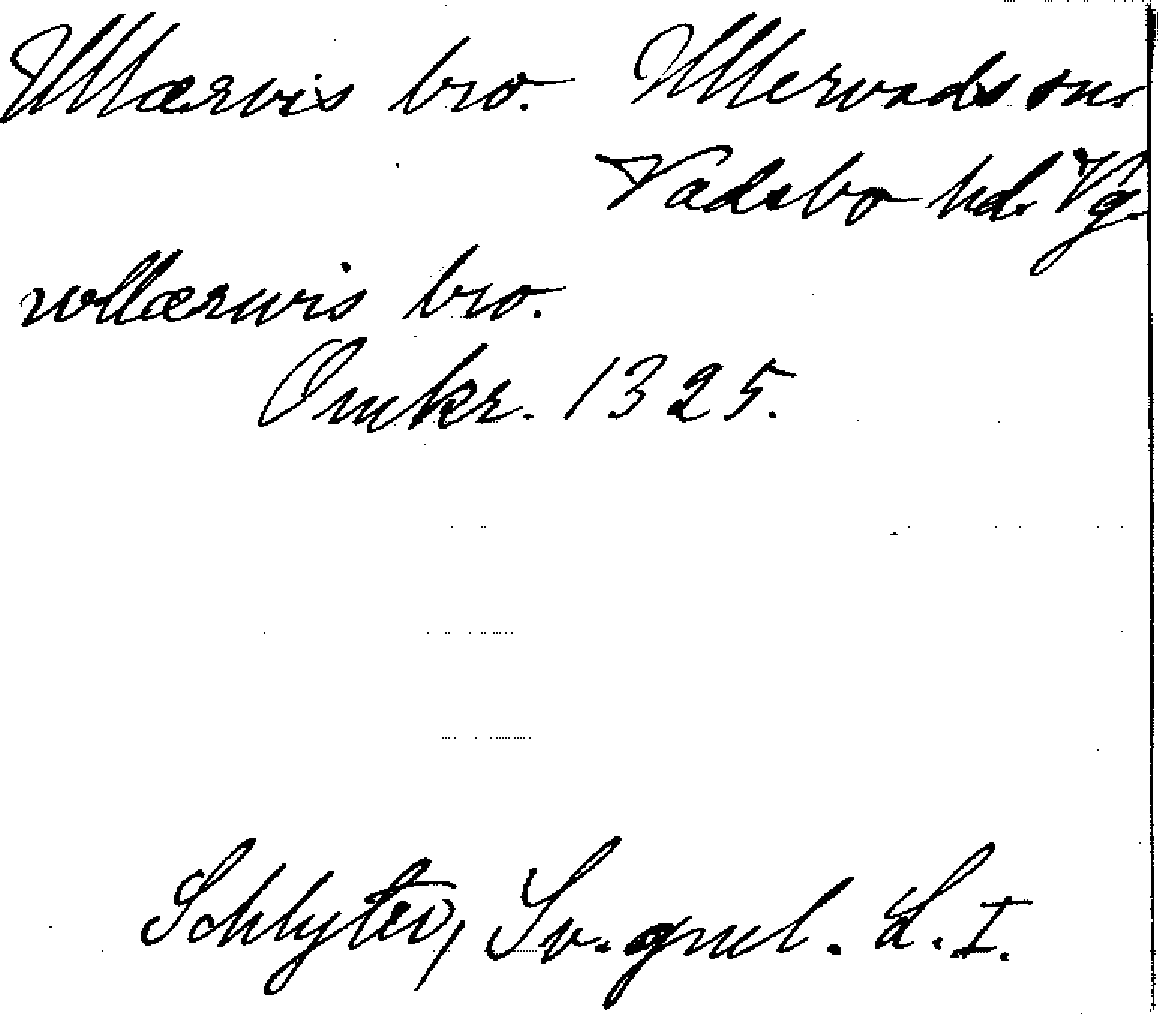 Ullærvis bro. Ullervads sn.
Vadsbo hd. Vg.
vllærwis bro.
Omkr. 1325.
Schlyter, Sv. gml. L. I.